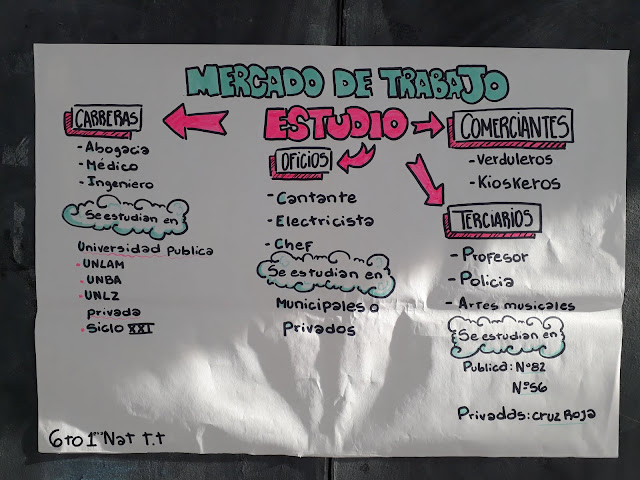 MERCADO DE TRABAJO
ESTUDIO
CARRERAS
- Abogacia
- Médico
- Ingeniero
Se estudian en
Universidad Publica
• UNLAM
• UNBA
• UNLZ
privada
• Siclo XXI
OFICIOS
- Cantante
- Electricista
- Chef
Se estudian en
Municipales o
Privados
COMERCIANTES
- Verduleros
- Kioskeros
TERCIARIOS
- Profesor
- Policia
- Artes musicales
Se estudian en
Publica: Nº82
Nº56
Privadas: cruz Roja
6to 1º Nat T.t